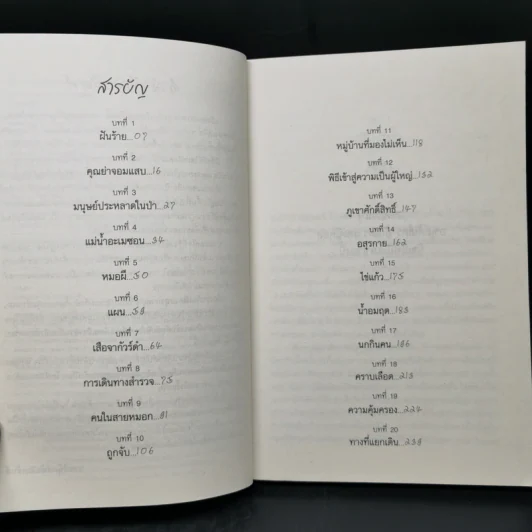 สารบัญ
บทที่ 1
ฝันร้าย...07
บทที่ 2
คุณย่าจอมแสบ...16
บทที่ 3
มนุษย์ประหลาดในป่า...27
บทที่ 4
แม่น้ำอะเมซอน...34
บทที่ 5
หมอผี...50
บทที่ 6
แผน...58
บทที่ 7
เสือจากัวร์ดำ...64
บทที่ 8
การเดินทางสำรวจ...75
บทที่ 9
คนในสายหมอก...81
บทที่ 10
ถูกจับ...106
บทที่ 11
หมู่บ้านที่มองไม่เห็น...118
บทที่ 12
พิธีเข้าสู่ความเป็นผู้ใหญ่...132
บทที่ 13
ภูเขาศักดิ์สิทธิ์...147
บทที่ 14
อสุรกาย...162
บทที่ 15
ไข่แก้ว...175
บทที่ 16
น้ำอมฤต...185
บทที่ 17
นกกินคน...
บทที่ 18
คราบเลือด...213
บทที่ 19
ความคุ้มครอง...224
บทที่ 20
ทางที่แยกเดิน...238